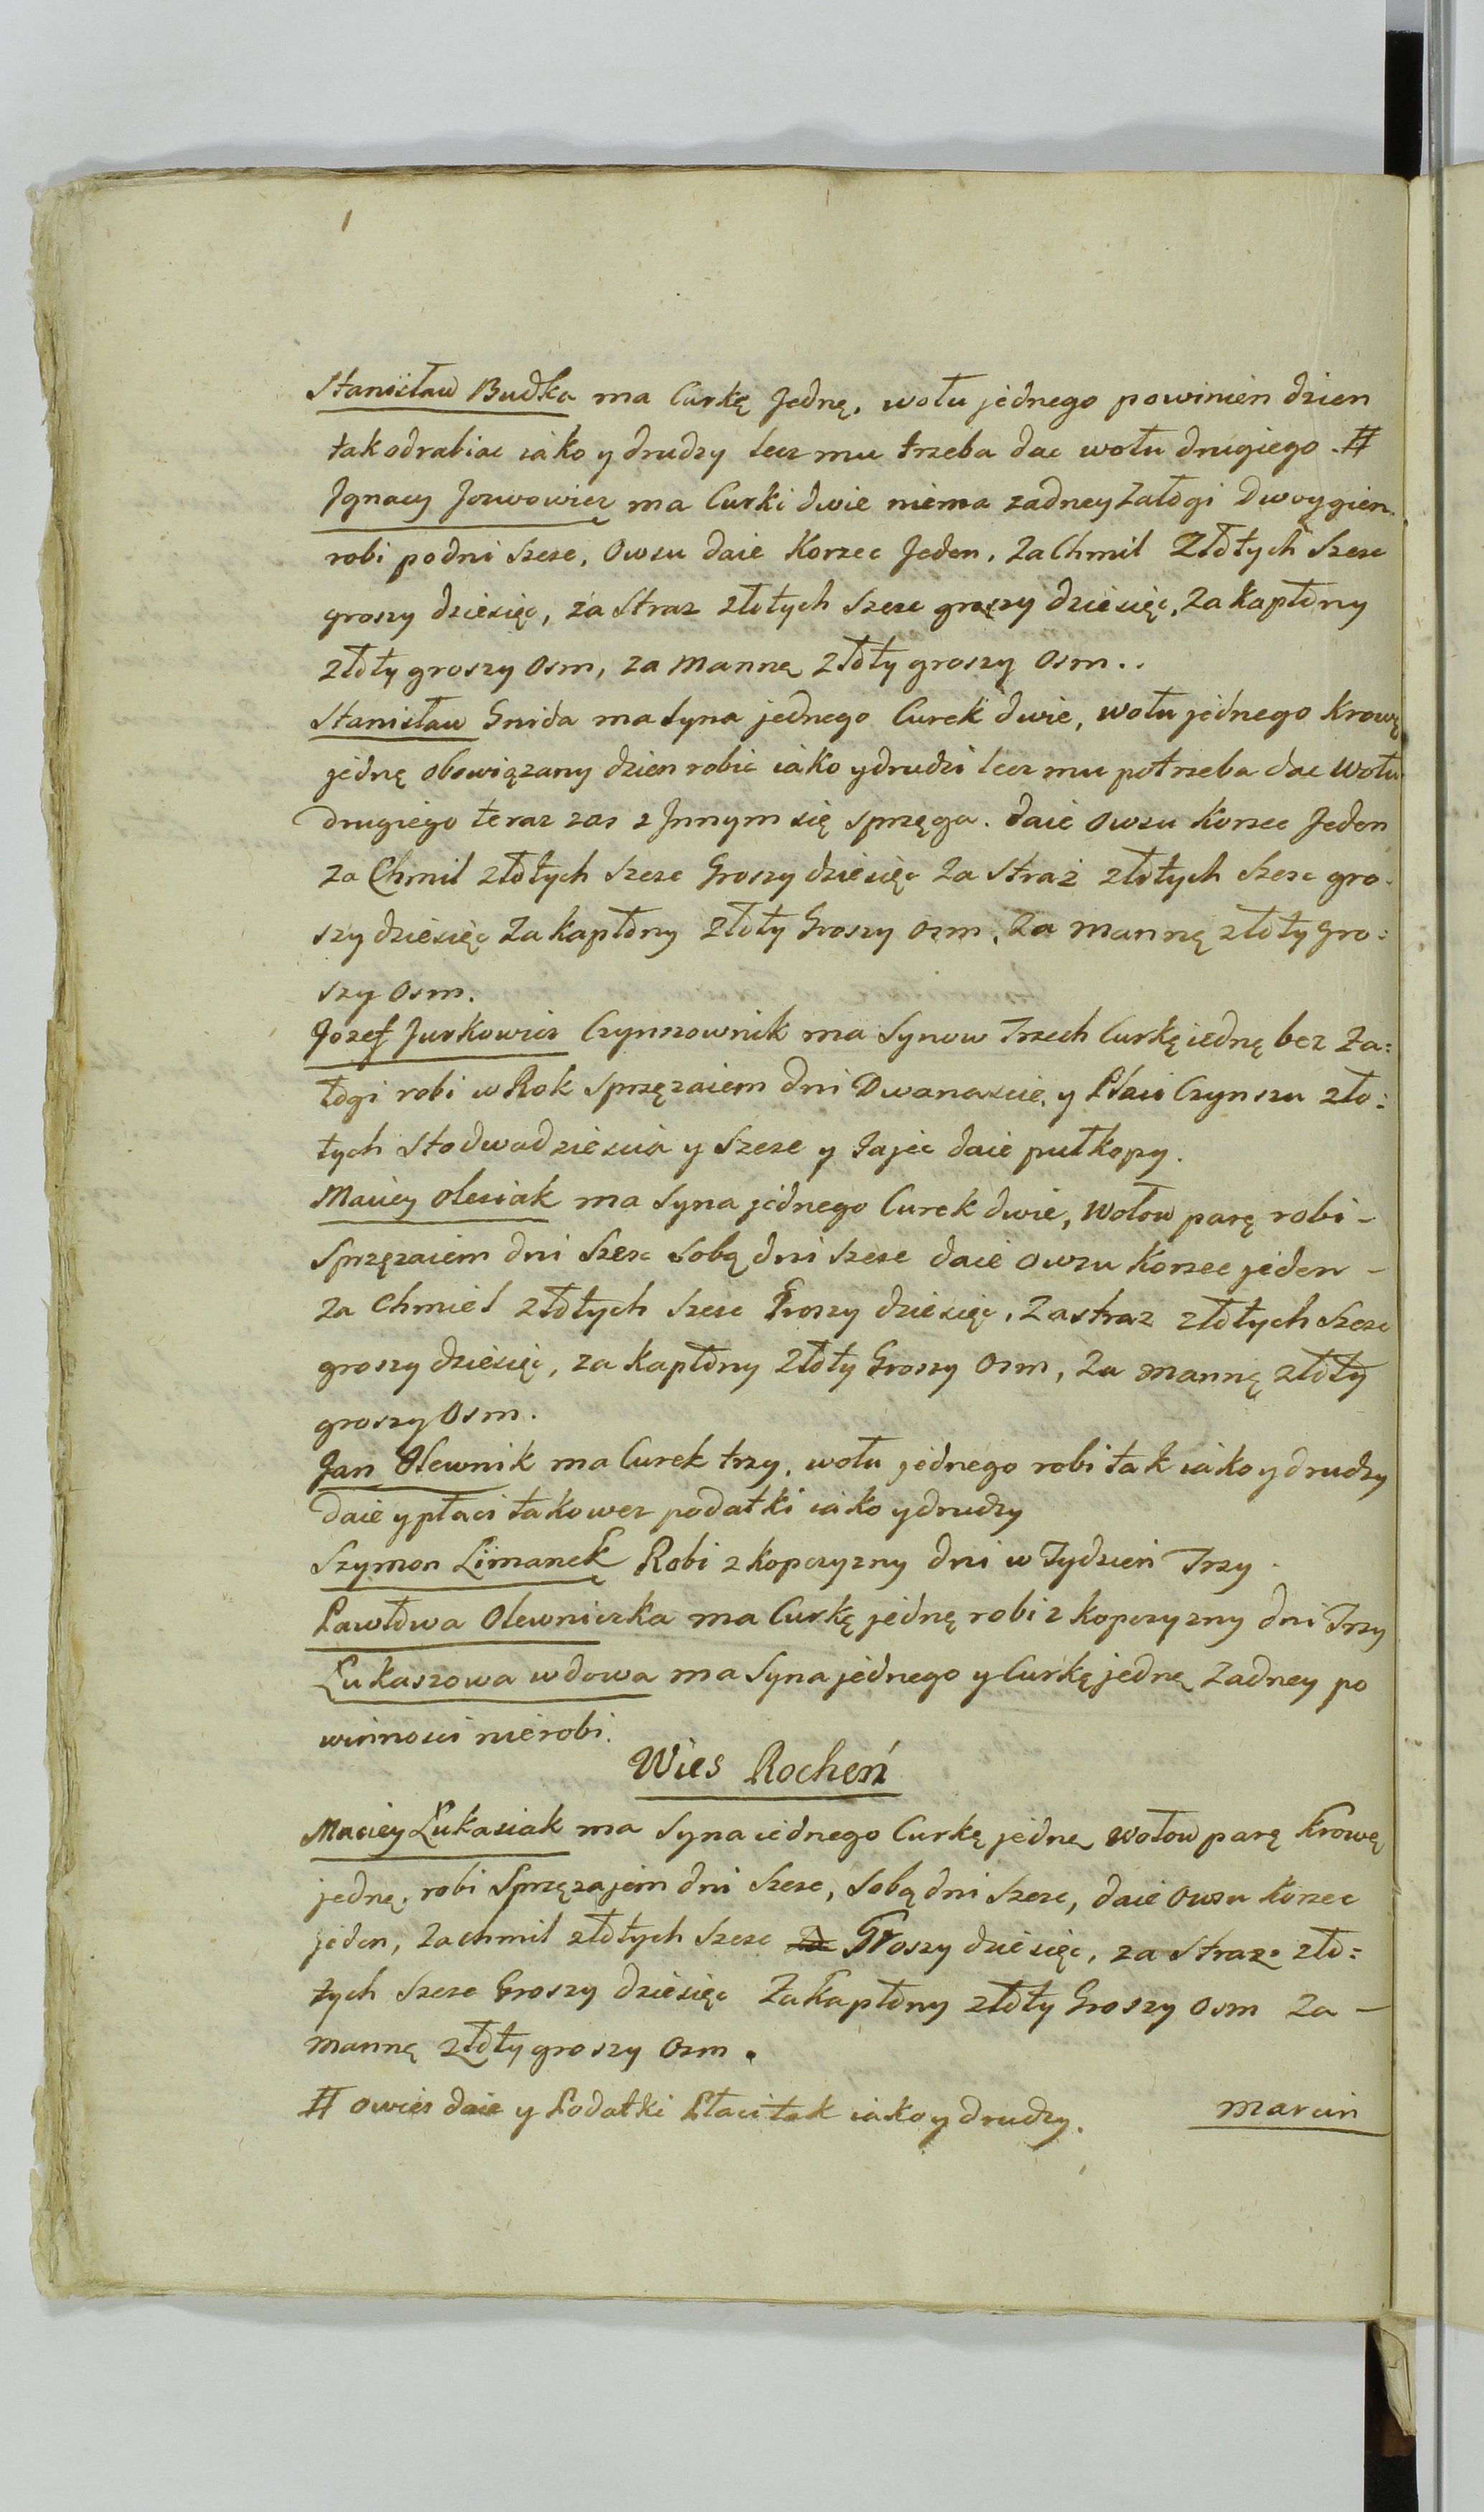 Stanisław Budka ma Curkę Jednę, wołu jednego powinien dzien
tak odrabiac iako y drudzy lecz mu trzeba dac wołu drugiego. #
Jgnacy ma Curki dwie niema zadney Załogi
robi po dni Szesc, Owsu daie Korzec Jeden, Za Chmil Złotych Szesc
groszy dziesięc, za Straz złotych Szesc groszy dziesięc, Za kapłony
złoty groszy Osm, za Mannę złoty groszy Osm..
Stanisław Gnida ma Syna jednego Curek dwie, wołu jednego Krowę
jednę obowiązany dzien robic iako y drudzi lecz mu potrzeba dac Wołu
drugiego teraz zas z Jnnym się sprzęga. daie Owsu Korzec Jeden
za Chmil złotych Szesc Groszy dziesięc Za Straż złotych Szesc gro-
szy dziesięc Za kapłony złoty Groszy Osm, Za Mannę złoty Gro:
szy Osm.
Jozef Jurkowicz Czynszownik ma Synow Trzech Curkę iednę bez Za:
łogi robi w Rok Sprzęzaiem dni Dwanascie, y Płaci Czynszu zło:
tych Stodwadziescia y Szesc y Jajec daie pułkopy.
Maciey Olesiak ma Syna jednego Curek dwie, Wołow parę robi -
Sprzęzaiem dni Szesc Sobą dni Szesc daie Owsu Korzec jeden -
za Chmiel złotych Szesc Groszy dziesięc, Za straz złotych Szesc
groszy dziesięc, za Kapłony Złoty Groszy Osm, Za Mannę złoty
groszy Osm.
Jan Olewnik ma Curek trzy, wołu jednego robi tak iako y drudzy
daie y płaci takowez podatki iako y drudzy
Szymon Limanek Robi z kopczyzny dni w Tydzień Trzy.
Pawłowa Olewniczka ma Curkę jednę robi z kopczyzny dni Trzy
Łukaszowa wdowa ma Syna jednego y Curkę jednę Zadney po
winnosci nierobi.
Wies Rocheń
Maciey Łukasiak ma Syna iednego Curkę jednę Wołow parę Krowę
jednę, robi Sprzęzajem dni Szesc, Sobą dni Szesc, daie Owsu Korzec
jeden, Za chmil złotych Szesc Groszy dziesięc, za Straze zło:
tych Szesc Groszy dziesięc Za Kapłony złoty Groszy Osm Za -
Mannę złoty groszy Osm.
# Owies daie y Podatki Płaci tak iako y drudzy.
Marcin